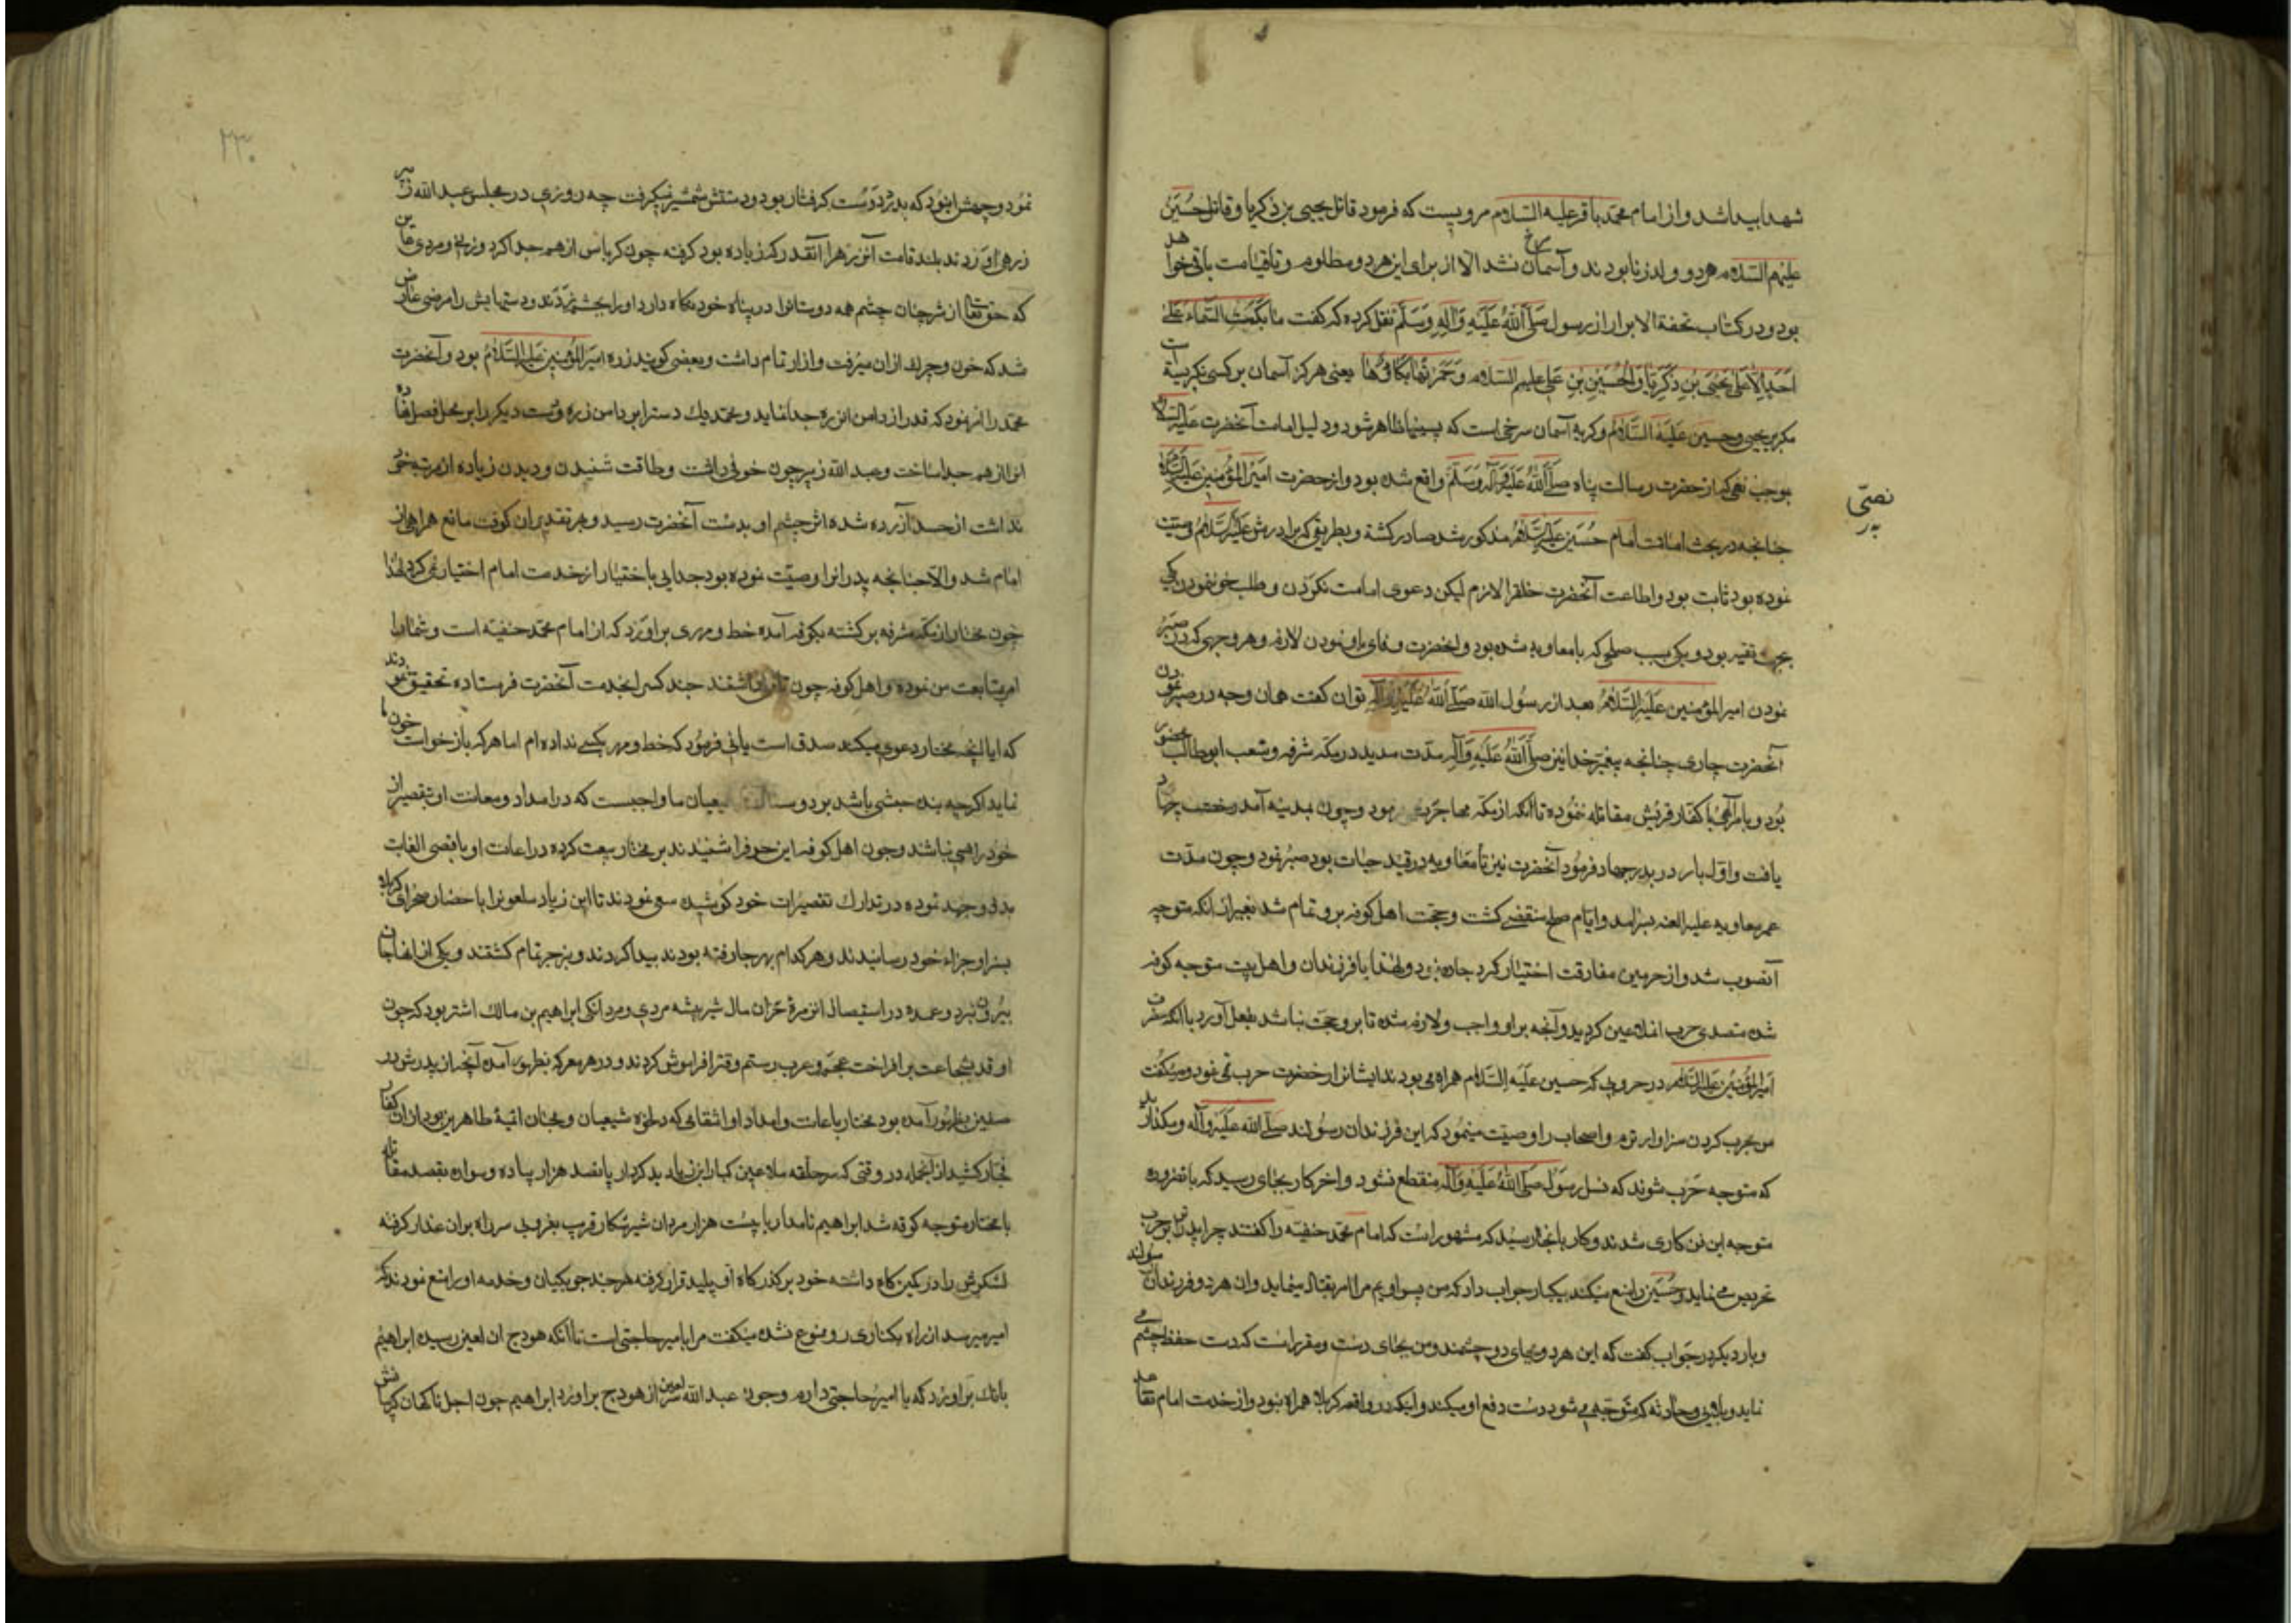 شهدا پیدا شد و از امام محمد باقر علیه السلام مرویست که فرمود قاتل یحیی بن زکریا و قاتل حسین
علیهم السلام هر دو ولد زنا بودند و آسمان سرخ نشد الا از برای این هر دو مظلوم و تا قیامت باقی خواهد
بود و در کتاب تحفة الابرار از رسول صَلَّی اللهُ عَلَیْهِ وَآلِهِ وَسَلَّم نقل کرده که گفت ما بَکَتِ السَّماءُ عَلیٰ
اَحَدٍ اِلّا عَلیٰ یَحْییَ بْنِ زَکَرِیّا وَالْحُسَیْنِ بْنِ عَلی علیهم السلام وَحُمْرَتُها بُکاؤُها یعنی هرگز آسمان بر کسی نگریست
مگر بر یحیی و حسین عَلَیْهِ السَّلام و گریه آسمان سرخی است که ظاهر شود و دلیل امامت آنحضرت علیه السلام
بموجب نصی که از حضرت رسالت پناه صَلَّی اللهُ عَلَیْهِ وَآلِهِ وَسَلَّم واقع شده بود و از حضرت امیر المؤمنین علیه السلام
نصی
چنانچه در بحث امامت امام حسین علیه السلام مذکور شد صادر گشته و بطریقی که برادرش علیه السلام وصیت
نموده بود ثابت بود و اطاعت آنحضرت خلق را لازم لیکن دعوی امامت نکردن و طلب خود ننمودن یکی
بجهت تقیه بود و یکی بسبب صلحی که با معاویه شده بود و آنحضرت وفای باو نمودن لازم و هر وجهی که در صبر
نمودن امیر المؤمنین عَلَیْهِ السَّلام بعد از رسول الله صَلَّی اللهُ عَلَیْهِ وَآلِهِ توان گفت همان وجه در صبر نمودن
آنحضرت جاری چنانچه پیغمبر خدا نیز صَلَّی اللهُ عَلَیْهِ وَآلِهِ مدت مدید در مکه مشرفه و شعب ابو طالب محصور
بود و با کفار قریش مقاتله ننموده تا آنکه از مکه مهاجرت نمود و چون بمدینه آمد رخصت جهاد
یافت و اول بار در بدر جهاد فرمود آنحضرت نیز تا معاویه در قید حیات بود صبر نمود و چون مدت
عمر معاویه علیه العنه بسر آمد و ایام صلح منقضی گشت و حجت اهل کوفه برو تمام شد بغیر از آنکه متوجه
آنصوب شد و از حرمین مفارقت اختیار کرد چاره نبود و لهذا با فرزندان و اهل بیت متوجه کوفه
شده متصدی حرب آن ملاعین گردید و آنچه بر او واجب و لازم شده تا برو حجت نباشد بفعل آورد با آنکه حضرت
امیر المؤمنین علیه السلام در حروبی که حسین عَلَیْهِ السَّلام همراه می بودند ایشانرا رخصت حرب نمی نمود و میگفت
من بحرب کردن سزاوارترم و اصحاب را وصیت مینمود که این فرزندان رسولند صلی الله علیه وآله ومگذارید
که متوجه حَرب شوند که نسل رسول صَلَّی اللهُ عَلَیْهِ وَآلِهِ منقطع نشود و آخر کار بجای رسید که بالضروره
متوجه این فن کاری شدند و کار بانجا رسید که مشهور است که امام محمد حنفیه را گفتند چرا پدر ترا بر حرب
تحریص می نماید و حسین را منع میکند یکبار جواب داد که من پسر اویم مرا امر بقتال مینماید و آن هر دو فرزندان رسولند
و بار دیگر در جواب گفت که این هر دو بجای دو چشمند و من بجای دست و مقرر است که دست حفظ چشم می
نماید و حادثه که متوجه می شود دست دفع او میکند و اینکه در واقعه کربلا همراه نبود و از خدمت امام تقاعد
۲۳۰
نمود وجهش این بود که بدرد دست گرفتار بود و دستش شمشیر نمیگرفت چه روزی در مجلس عبد الله زبیر
زرهی آوردند بلند قامت آن زره را آنقدر که زیاده بود گرفته چون کرباس از هم جدا کرد و زنی و مردی قاین
که حق تعالی از شر چنان چشم همه دوستانرا در پناه خود نگاه دارد او را بچشم زدند و دستهایش را مرضی عارض
شد که خون و چرک از آن میرفت و آزار تمام داشت و بعضی گویند زره امیر المؤمنین علیه السلام بود و آنحضرت
محمد را امر نمود که قدر از دامن آن زره جدا نماید و محمد یک دست را بر دامن زره و دست دیگر را بر محل فصل نهاده
آنرا از هم جدا ساخت و عبد الله زبیر چون خوفی داشت و طاقت شنیدن و دیدن زیاده از مرتبه خود
نداشت از حسد آزرده شده اثر چشم او بدست آنحضرت رسید و بهر تقدیر آن کوفت مانع همراهی از
امام شد و الا چنانچه پدر او را وصیت نموده بود جدایی باختیار از خدمت امام اختیار نمی کرد لهذا
چون مختار از مکه مشرفه برگشته بکوفه آمده خط و مهری برآورد که از امام محمد حنفیه است و شما را
امر بمتابعت من نموده و اهل کوفه چون چند کس را بخدمت آنحضرت فرستاده تحقیق نمودند
که آیا آنچه مختار دعوی میکند صدق است یا نی فرمود که خط و مهر بکسی نداده ام اما هر که باز خواست خون ما
نماید اگرچه بنده حبشی باشد بر دوستان و شیعیان ما واجبست که در امداد و معاونت او بتقصیر از
خود راضی نباشد و چون اهل کوفه این حرف را شنیدند بر مختار بیعت کرده در اعانت او باقصی الغایت
جد و جهد نموده در تدارک تقصیرات خود کوشیده سعی نمودند تا ابن زیاد ملعون را با حضار صحرای کربلا
بسزا و جزاء خود رسانیدند و هر کدام بهر جا رفته بودند پیدا کردند و بزجر تمام کشتند و یکی از آنها جان
بیرون نبرد و عمده در استیصال آن زمره خران مال شیر بیشه مردی و مردانگی ابراهیم بن مالک اشتر بود که چون
او قد بشجاعت برافراخت عجم و عرب رستم و را فراموش کردند و در هر معرکه بظهور آمده آنچه از پدرش در
صفین بظهور آمده بود مختار باعانت و امداد او اشقیایی که شیعیان و محبان ائمه طاهرین بود از آن کفار
فجار کشید از آنجمله در وقتی که سر حلقه ملاعین کبار ابن زیاد بد کردار با پانصد هزار پیاده و سواره بقصد مقاتله
با مختار متوجه کوفه شد ابراهیم نامدار با بیست هزار مردان شیر شکار قریب بغروب سر راه بر آن غدار گرفته
لشکرش را در کمین گاه داشته خود بر گذرگاه آن پلید قرار گرفته هر چند چوبکیان و خدمه او را منع نمودند که
امیر میرسد از راه بکناری رو ممنوع نشده میگفت مرا با امیر حاجتی است تا آنکه هودج آن لعین رسید ابراهیم
بانک برآورد که یا امیر حاجتی دارم و چون عبد الله لعین سر از هودج برآورد ابراهیم چون اجل ناگهان گریبانش